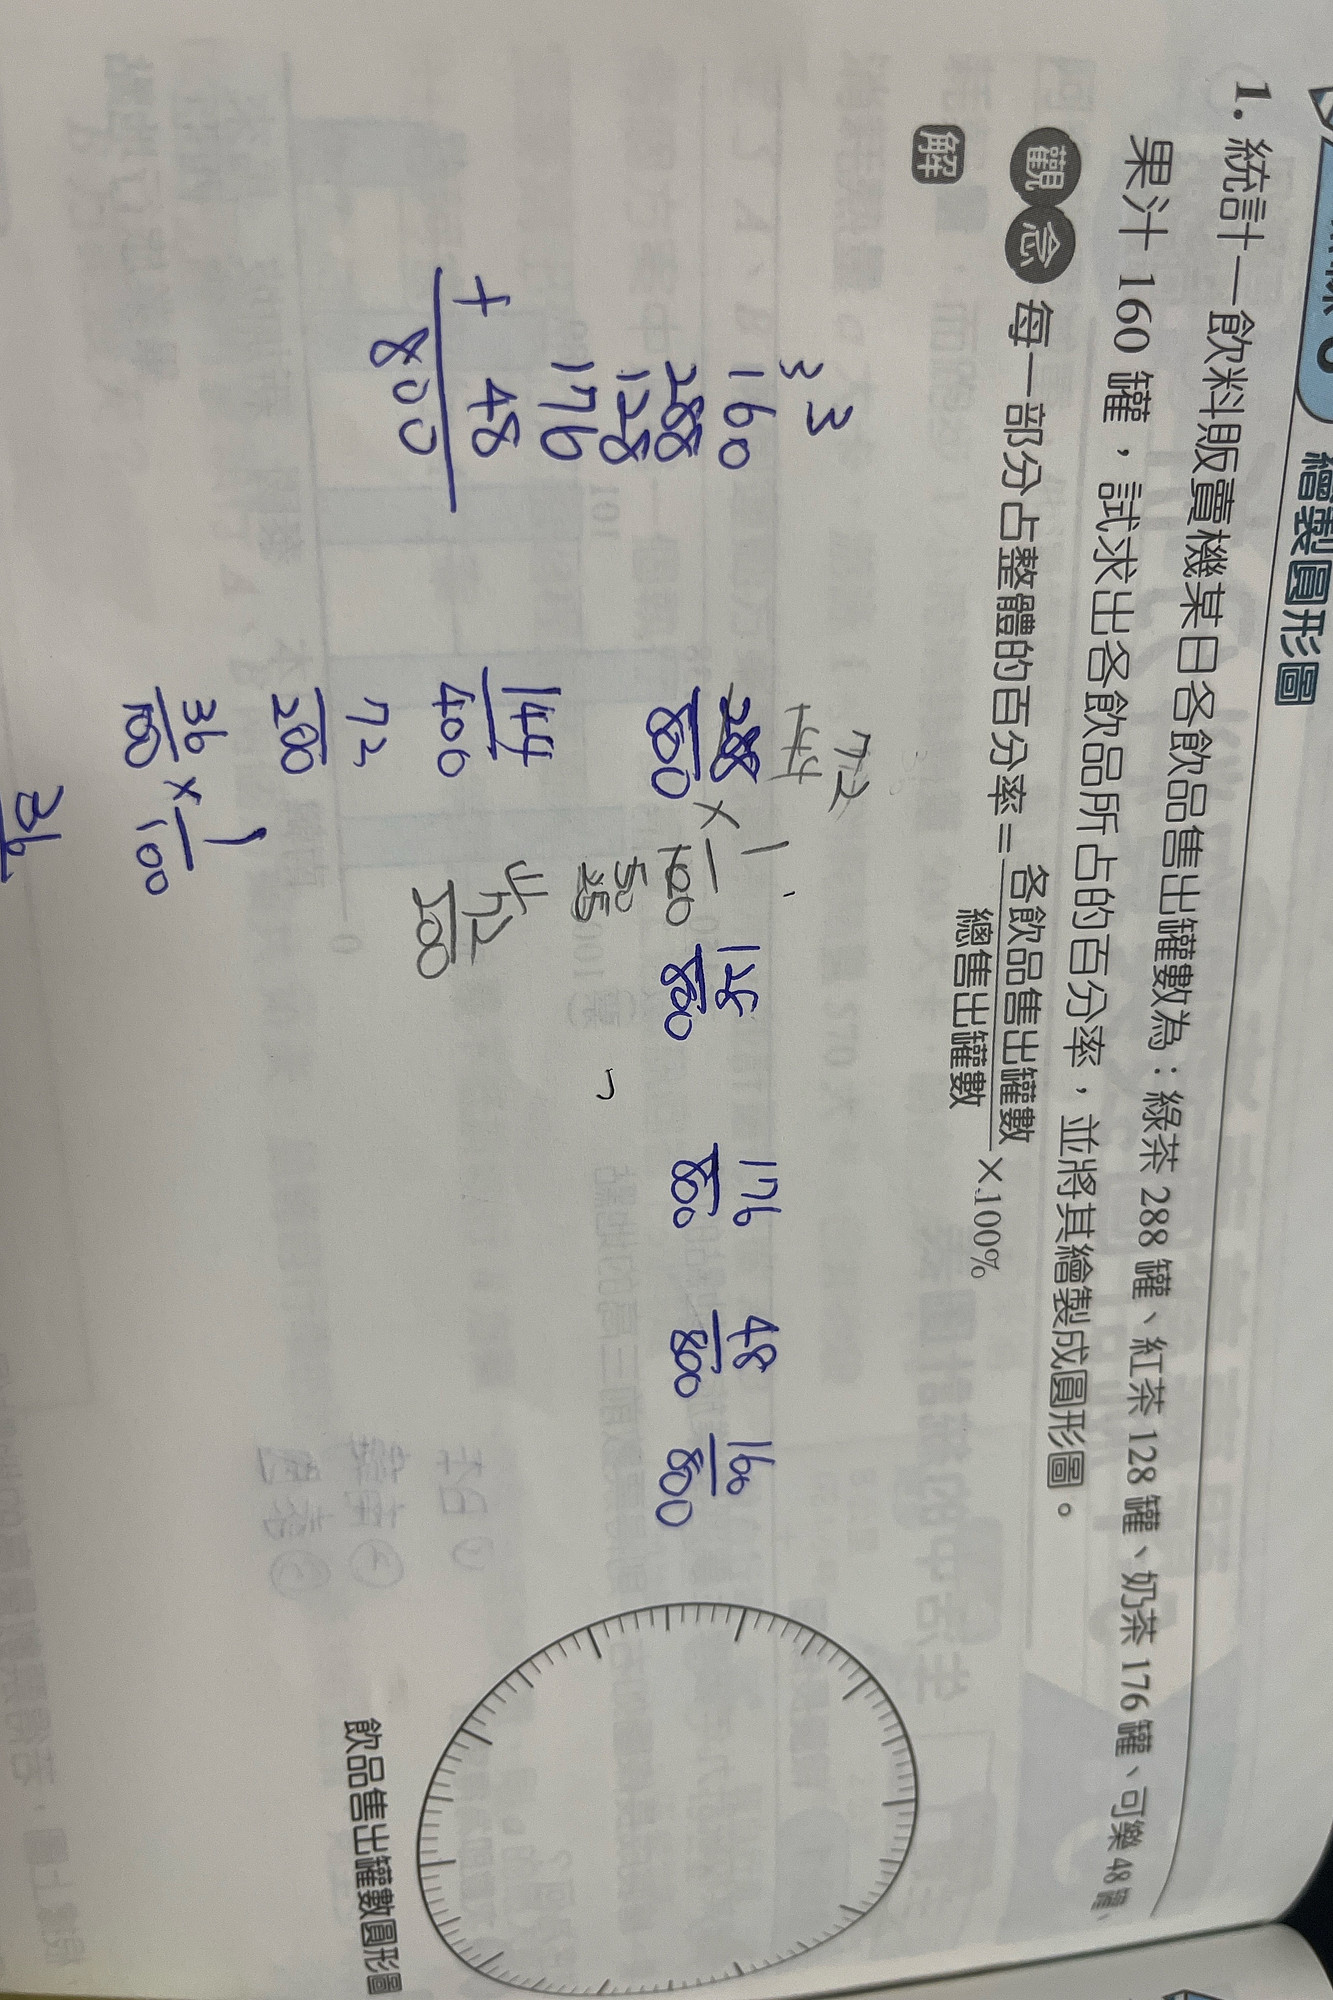 繪製圓形圖
1. 統計一飲料販賣機某日各飲品售出罐數為：綠茶 288 罐、紅茶 128 罐、奶茶 176 罐、可樂 48 罐、
果汁 160 罐，試求出各飲品所占的百分率，並將其繪製成圓形圖。
觀念 每一部分占整體的百分率 = 各飲品售出罐數/總售出罐數 ×100%
解
3 3
160
288
128
176
+ 48
800
72
144
288/800 × 1/100
50
25
72/100
144/400
72/200
36/100 × 1/100
36
176/800
48/800
160/800
飲品售出罐數圓形圖